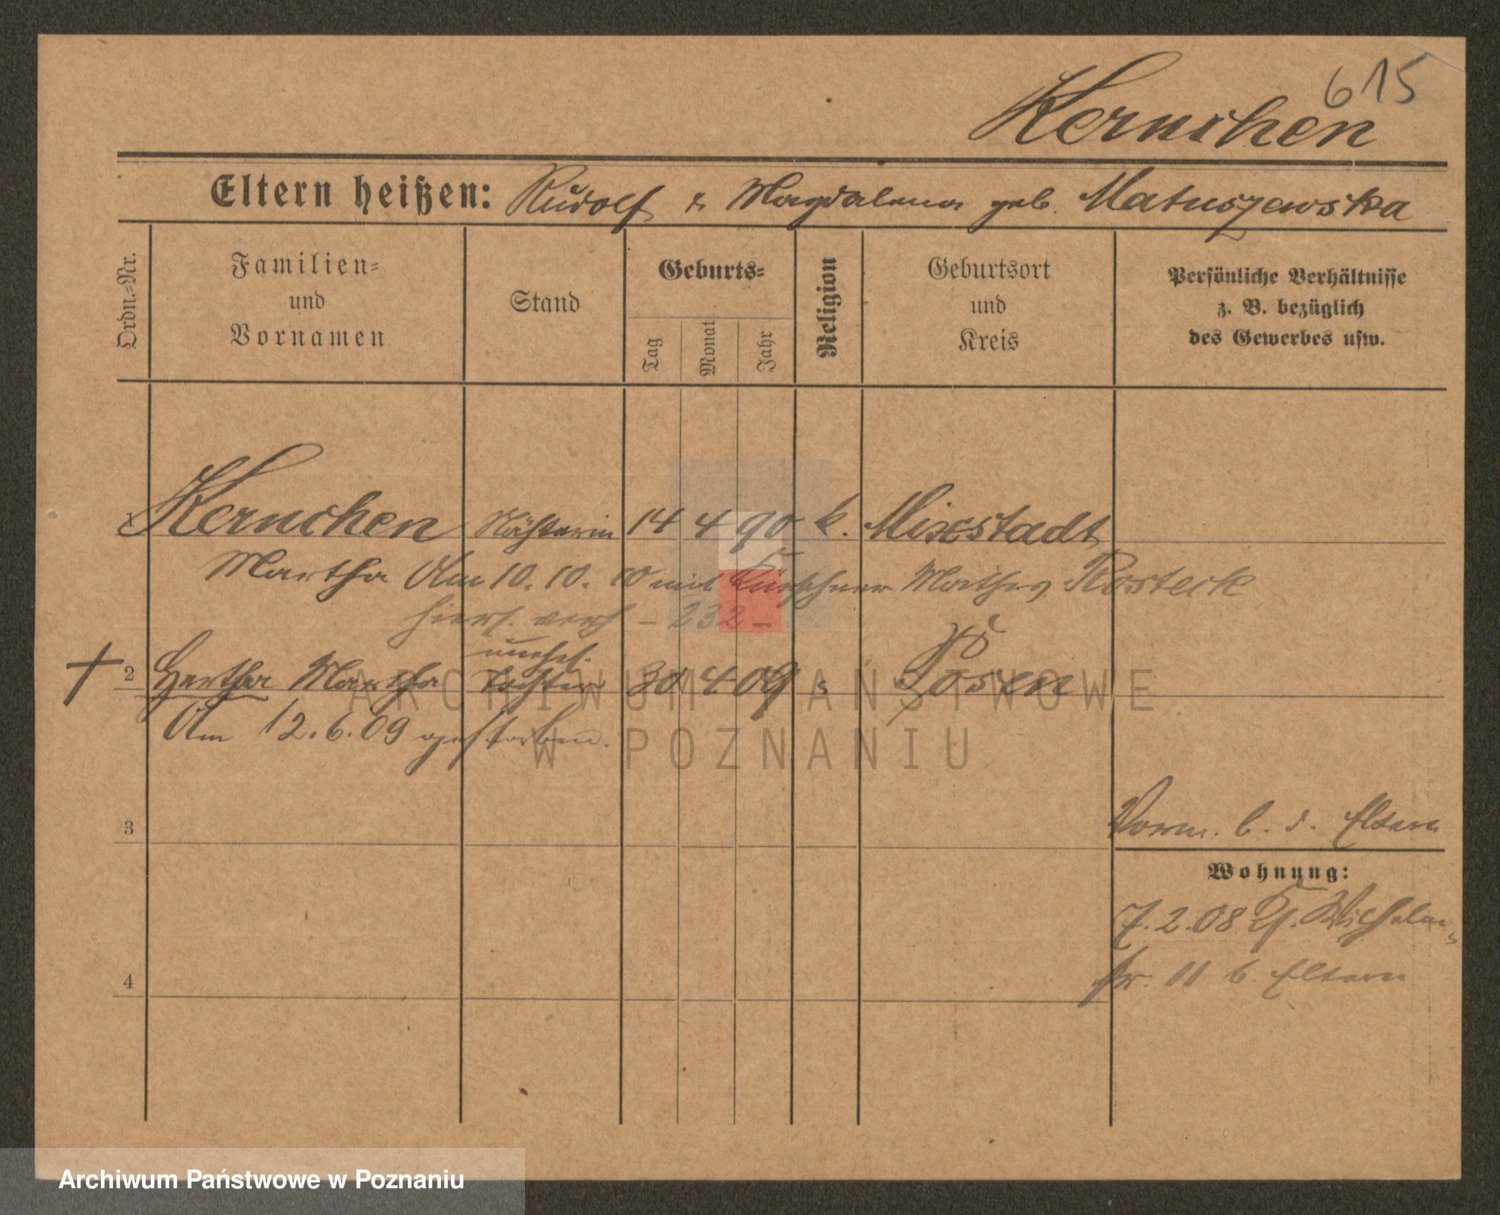 615
Kernchen
Eltern heißen: Rudolf & Magdalena geb. Matuszewska
Ordn.=Nr.
Familien=
und
Vornamen
Stand
Geburts=
Tag
Monat
Jahr
Religion
Geburtsort
und
Kreis
Persönliche Verhältnisse
z. B. bezüglich
des Gewerbes usw.
1 Kernchen Nähterin 14 4 90 k. Mixstadt
Martha Am 10. 10. 10 mit Kürschner Mathes Rosteck
hiers. verh – 232 –
unehel.
2 Hertha Martha Tochter 30 4 09 " Posen
Am 12. 6. 09 gestorben.
3
Vorm. b. d. Eltern
Wohnung:
7. 2. 08 Kl. Wilhelm-
str. 11 b. Eltern
4
ARCHIWUM PAŃSTWOWE
W POZNANIU
Archiwum Państwowe w Poznaniu